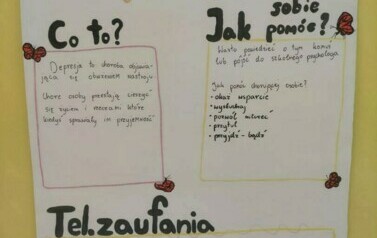 Co to?
Depresja to choroba objawia-
jąca się obniżeniem nastroju.
Chore osoby przestają cieszyć
się życiem i rzeczami które
kiedyś sprawiały im przyjemność
Jak sobie
pomóc?
Warto powiedzieć o tym komuś
lub pójść do szkolnego psychologa
Jak pomóc chorującej osobie?
- okaż wsparcie
- wysłuchaj
- pozwól milczeć
- przytul
- przyjdź - bądź
Tel.zaufania